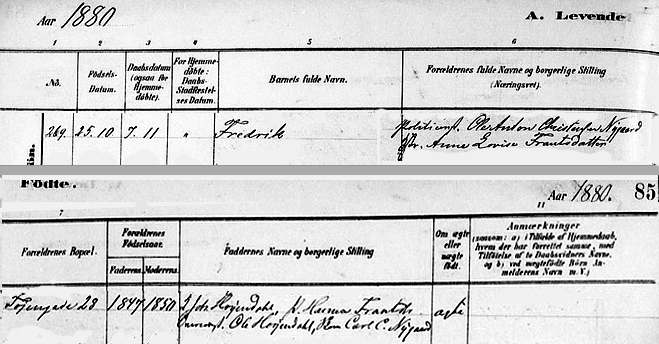 Aar 1880
A. Levende
1 2 3 4 5 6
No.
Födsels-
Datum.
Daabsdatum
(ogsaa for
Hjemme-
døbte).
For Hjemme-
døbte:
Daabs-
Stadfæstel-
ses Datum.
Barnets fulde Navn.
Forældrenes fulde Navne og borgerlige Stilling
(Næringsvei).
269. 25.10 7.11 " Fredrik
Ole Anton Christensen Nygaard
Anne Lovise Frantsdatter
Fødte.
Aar 1880. 85
7
Forældrenes Bopæl.
Forældrenes
Fødselsaar.
Faderens. Moderens.
Faddernes Navne og borgerlige Stilling
Om ægte
eller
uægte
født.
Anmærkninger
(saasom: a) i Tilfælde af Hjemmedaab,
hvem der har forrettet samme, med
Tilføielse af to Daabsvidners Navne,
og b) ved uægtefødte Börn An-
melderens Navn m. V.)
28 1847 1850 Høyendahl, Hanna
Ole Høyendahl, Carl C. Nygaard
ægte